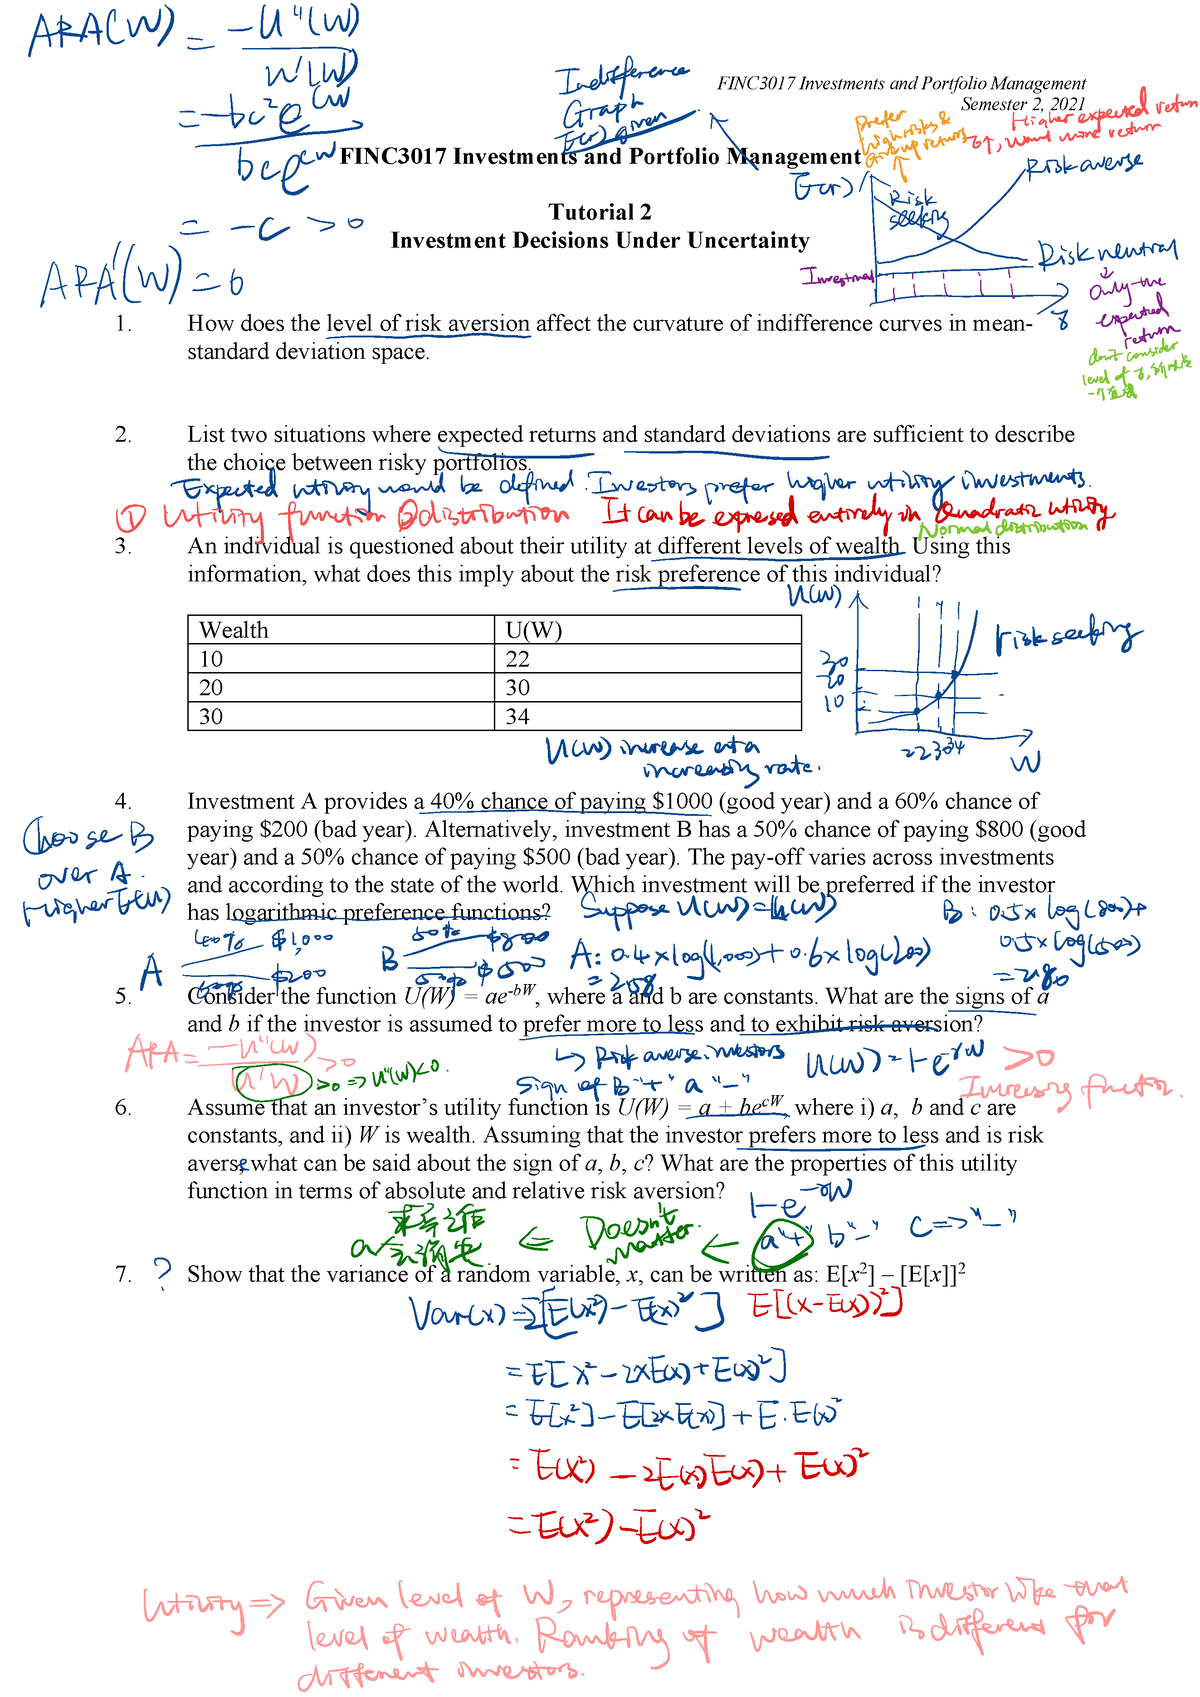 ARA(W) = -U''(W)
U'(W)
= -bc²e^cW
bce^cW
= -c > 0
ARA'(W) = 0
Indifference
Graph
E(r) given
FINC3017 Investments and Portfolio Management
Semester 2, 2021
Prefer
high risks &
Giving up returns
Higher expected return
σ↑, want more return
FINC3017 Investments and Portfolio Management
E(r)
Risk averse
Risk
seeking
Tutorial 2
Investment Decisions Under Uncertainty
Risk neutral
Only the
expected
return
don't consider
level of σ,
1. How does the level of risk aversion affect the curvature of indifference curves in mean-
standard deviation space.
2. List two situations where expected returns and standard deviations are sufficient to describe
the choice between risky portfolios.
Expected utility would be defined. Investors prefer higher utility investments.
① Utility function ② distribution It can be expressed entirely in Quadratic utility
Normal distribution
3. An individual is questioned about their utility at different levels of wealth. Using this
information, what does this imply about the risk preference of this individual?
Wealth U(W)
10 22
20 30
30 34
U(W)
30
20
10
22 30 34
W
risk seeking
U(W) increase at a
increasing rate.
4. Investment A provides a 40% chance of paying $1000 (good year) and a 60% chance of
paying $200 (bad year). Alternatively, investment B has a 50% chance of paying $800 (good
year) and a 50% chance of paying $500 (bad year). The pay-off varies across investments
and according to the state of the world. Which investment will be preferred if the investor
has logarithmic preference functions?
Choose B
over A.
Higher E(U)
Suppose U(W) = ln(W)
A
40% $1,000
60% $200
B
50% $800
50% $500
A: 0.4 × log(1,000) + 0.6 × log(200)
= 2.58
B: 0.5 × log(800) +
0.5 × log(500)
= 2.80
5. Consider the function U(W) = ae^-bW, where a and b are constants. What are the signs of a
and b if the investor is assumed to prefer more to less and to exhibit risk aversion?
ARA = -U''(W) > 0
U'W > 0 => U''(W) < 0.
↳ Risk averse investors
Sign of B "+" a "-"
U(W) = 1-e^-rW > 0
Increasing function.
6. Assume that an investor's utility function is U(W) = a + be^cW, where i) a, b and c are
constants, and ii) W is wealth. Assuming that the investor prefers more to less and is risk
averse, what can be said about the sign of a, b, c? What are the properties of this utility
function in terms of absolute and relative risk aversion?
1-e^-rW
a "+" b "-" c => "-"
← Doesn't
matter.
7. ? Show that the variance of a random variable, x, can be written as: E[x²] – [E[x]]²
Var(x) = Σ[E(x²) - E(x)²] E[(x-E(x))²]
= E[x² - 2xE(x) + E(x)²]
= E[x²] - E[2xE(x)] + E·E(x)²
= E(x²) - 2E(x)E(x) + E(x)²
= E(x²) - E(x)²
Utility => Given level of W, representing how much investor like that
level of wealth. Ranking of wealth is different for
different investors.